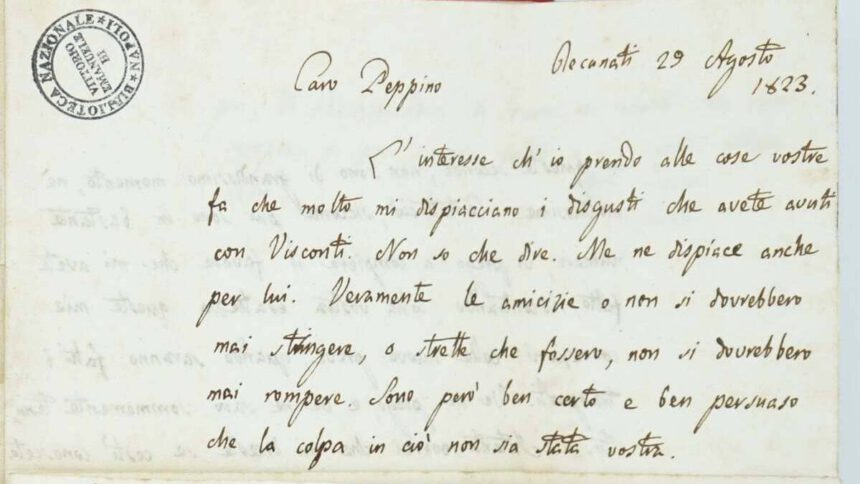 BIBLIOTECA NAZIONALE NAPOLI
VITTORIO
EMANUELE
III
Recanati 29 Agosto
1823.
Caro Peppino
L' interesse ch' io prendo alle cose vostre
fa che molto mi dispiacciano i disgusti che avete avuti
con Visconti. Non so che dire. Me ne dispiace anche
per lui. Veramente le amicizie o non si dovrebbero
mai stringere, o strette che fossero, non si dovrebbero
mai rompere Sono però ben certo e ben persuaso
che la colpa in ciò non sia stata vostra.